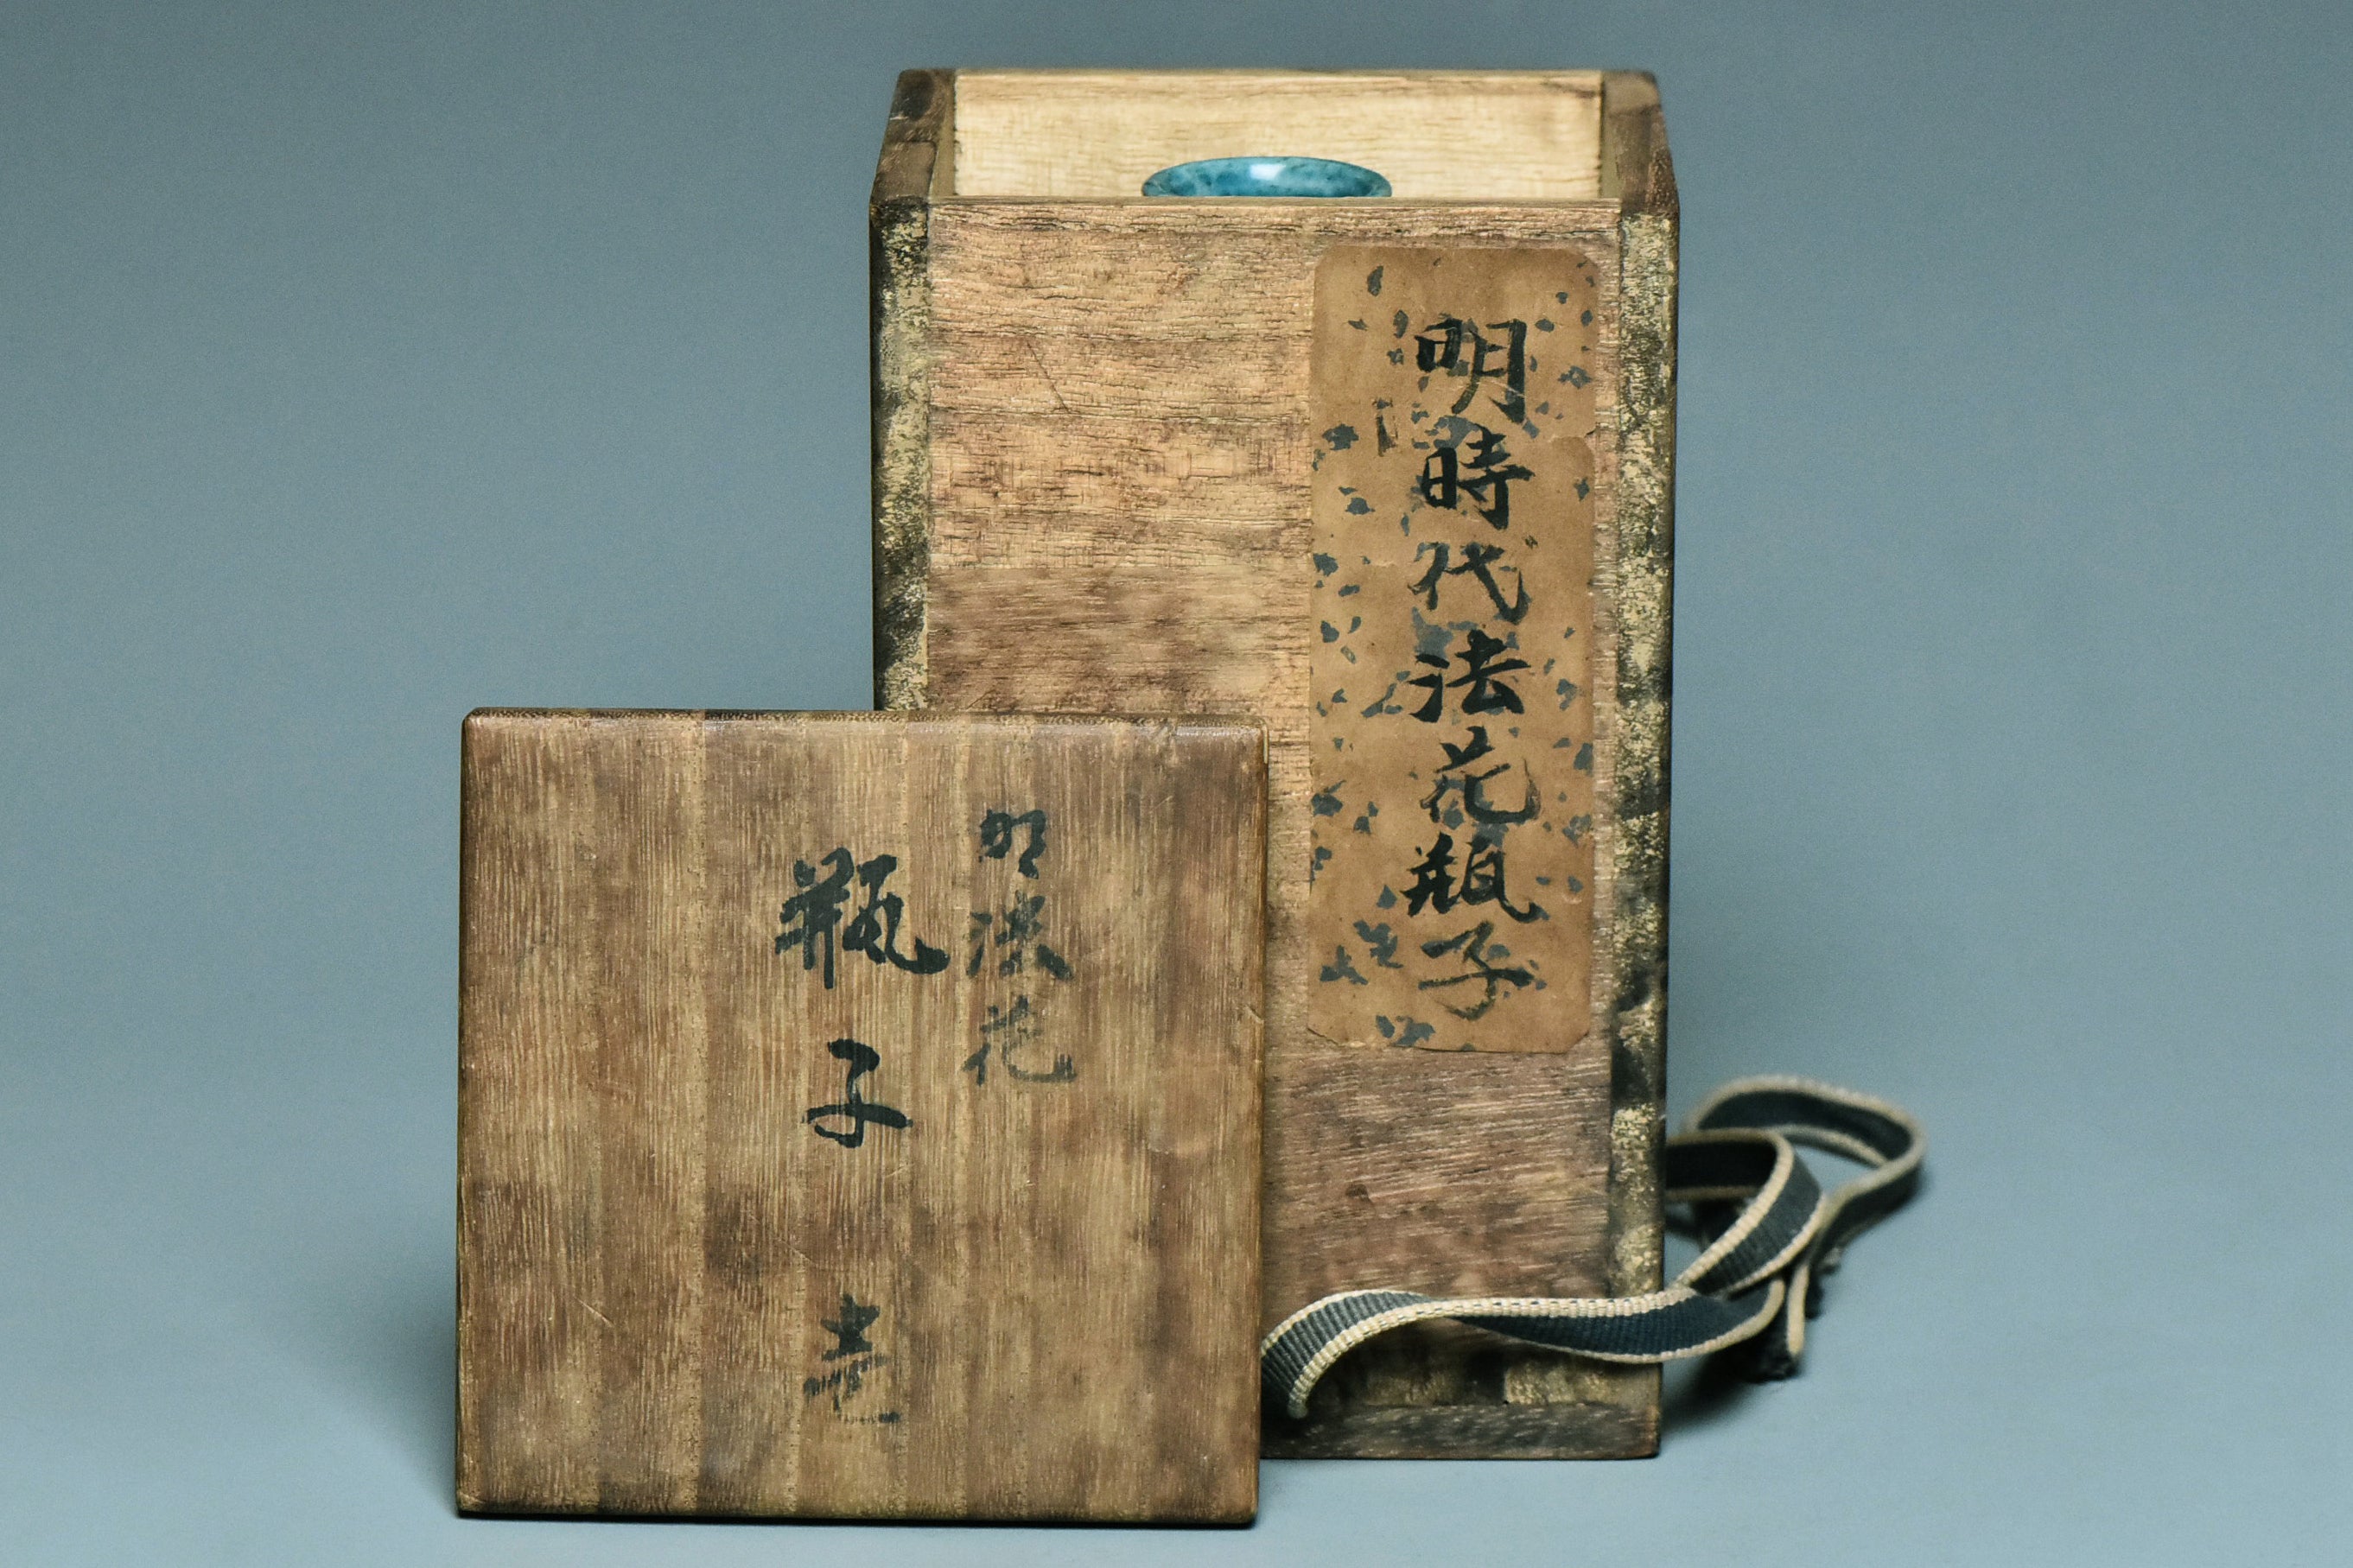 明時代法花瓶子
明法花
瓶子 壱